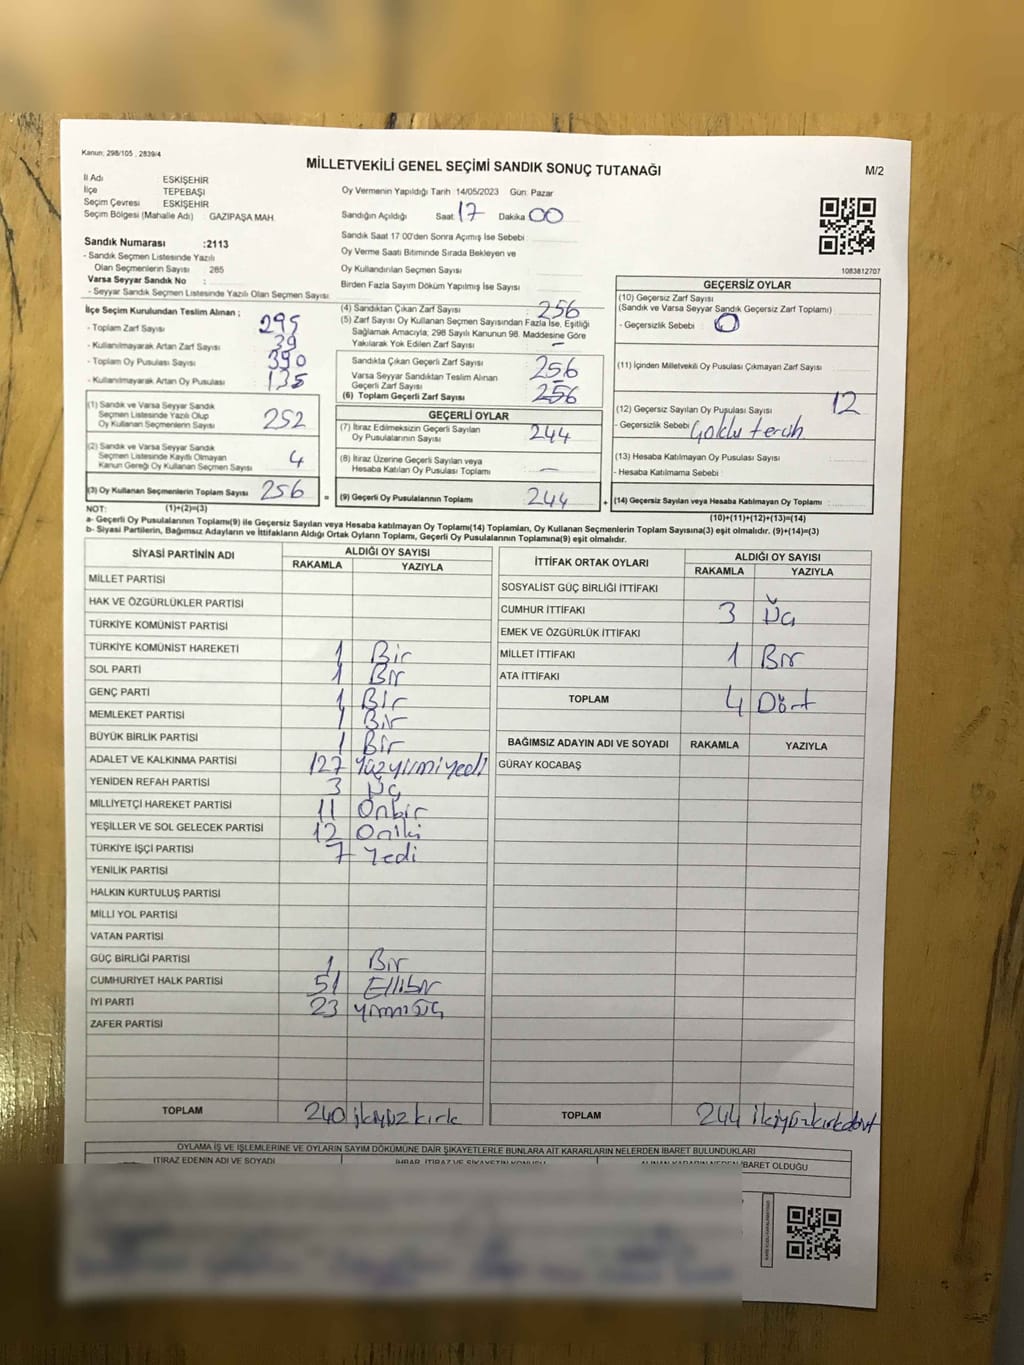 Kanun; 298/105 , 2839/4
MİLLETVEKİLİ GENEL SEÇİMİ SANDIK SONUÇ TUTANAĞI
M/2
İl Adı ESKİŞEHİR
İlçe TEPEBAŞI
Seçim Çevresi ESKİŞEHİR
Seçim Bölgesi (Mahalle Adı) : GAZİPAŞA MAH.
Sandık Numarası :2113
- Sandık Seçmen Listesinde Yazılı
Olan Seçmenlerin Sayısı : 285
Varsa Seyyar Sandık No :
- Seyyar Sandık Seçmen Listesinde Yazılı Olan Seçmen Sayısı
Oy Vermenin Yapıldığı Tarih 14/05/2023 Gün: Pazar
Sandığın Açıldığı Saat 17 Dakika 00
Sandık Saat 17:00'den Sonra Açımış İse Sebebi :
Oy Verme Saati Bitiminde Sırada Bekleyen ve
Oy Kullandırılan Seçmen Sayısı
Birden Fazla Sayım Döküm Yapılmış İse Sayısı
1083812707
İlçe Seçim Kurulundan Teslim Alınan ;
- Toplam Zarf Sayısı 295
- Kullanılmayarak Artan Zarf Sayısı 39
- Toplam Oy Pusulası Sayısı 390
- Kullanılmayarak Artan Oy Pusulası 135
(1) Sandık ve Varsa Seyyar Sandık
Seçmen Listesinde Yazılı Olup
Oy Kullanan Seçmenlerin Sayısı 252
(2) Sandık ve Varsa Seyyar Sandık
Seçmen Listesinde Kayıtlı Olmayan
Kanun Gereği Oy Kullanan Seçmen Sayısı 4
(3) Oy Kullanan Seçmenlerin Toplam Sayısı 256 =
(4) Sandıktan Çıkan Zarf Sayısı 256
(5) Zarf Sayısı Oy Kullanan Seçmen Sayısından Fazla İse, Eşitliği
Sağlamak Amacıyla; 298 Sayılı Kanunun 98. Maddesine Göre
Yakılarak Yok Edilen Zarf Sayısı –
Sandıkta Çıkan Geçerli Zarf Sayısı 256
Varsa Seyyar Sandıktan Teslim Alınan
Geçerli Zarf Sayısı –
(6) Toplam Geçerli Zarf Sayısı 256
GEÇERLİ OYLAR
(7) İtiraz Edilmeksizin Geçerli Sayılan
Oy Pusulalarının Sayısı 244
(8) İtiraz Üzerine Geçerli Sayılan veya
Hesaba Katılan Oy Pusulası Toplamı –
(9) Geçerli Oy Pusulalarının Toplamı 244 +
GEÇERSİZ OYLAR
(10) Geçersiz Zarf Sayısı
(Sandık ve Varsa Seyyar Sandık Geçersiz Zarf Toplamı)
- Geçersizlik Sebebi : 0
(11) İçinden Milletvekili Oy Pusulası Çıkmayan Zarf Sayısı
(12) Geçersiz Sayılan Oy Pusulası Sayısı 12
- Geçersizlik Sebebi Çoklu tercih
(13) Hesaba Katılmayan Oy Pusulası Sayısı
- Hesaba Katılmama Sebebi
(14) Geçersiz Sayılan veya Hesaba Katılmayan Oy Toplamı
NOT: (1)+(2)=(3)
(10)+(11)+(12)+(13)=(14)
a- Geçerli Oy Pusulalarının Toplamı(9) ile Geçersiz Sayılan veya Hesaba katılmayan Oy Toplamı(14) Toplamları, Oy Kullanan Seçmenlerin Toplam Sayısına(3) eşit olmalıdır. (9)+(14)=(3)
b- Siyasi Partilerin, Bağımsız Adayların ve İttifakların Aldığı Ortak Oyların Toplamı, Geçerli Oy Pusulalarının Toplamına(9) eşit olmalıdır.
SİYASİ PARTİNİN ADI ALDIĞI OY SAYISI
RAKAMLA YAZIYLA
MİLLET PARTİSİ
HAK VE ÖZGÜRLÜKLER PARTİSİ
TÜRKİYE KOMÜNİST PARTİSİ
TÜRKİYE KOMÜNİST HAREKETİ 1 Bir
SOL PARTİ 1 Bir
GENÇ PARTİ 1 Bir
MEMLEKET PARTİSİ 1 Bir
BÜYÜK BİRLİK PARTİSİ 1 Bir
ADALET VE KALKINMA PARTİSİ 127 Yüzyirmiyedi
YENİDEN REFAH PARTİSİ 3 Üç
MİLLİYETÇİ HAREKET PARTİSİ 11 Onbir
YEŞİLLER VE SOL GELECEK PARTİSİ 12 Oniki
TÜRKİYE İŞÇİ PARTİSİ 7 Yedi
YENİLİK PARTİSİ
HALKIN KURTULUŞ PARTİSİ
MİLLİ YOL PARTİSİ
VATAN PARTİSİ
GÜÇ BİRLİĞİ PARTİSİ 1 Bir
CUMHURİYET HALK PARTİSİ 51 Ellibir
İYİ PARTİ 23 Yirmiüç
ZAFER PARTİSİ
TOPLAM 240 ikiyüzkırk
İTTİFAK ORTAK OYLARI ALDIĞI OY SAYISI
RAKAMLA YAZIYLA
SOSYALİST GÜÇ BİRLİĞİ İTTİFAKI
CUMHUR İTTİFAKI 3 Üç
EMEK VE ÖZGÜRLÜK İTTİFAKI
MİLLET İTTİFAKI 1 Bir
ATA İTTİFAKI
TOPLAM 4 Dört
BAĞIMSIZ ADAYIN ADI VE SOYADI RAKAMLA YAZIYLA
GÜRAY KOCABAŞ
TOPLAM 244 ikiyüzkırkdört
OYLAMA İŞ VE İŞLEMLERİNE VE OYLARIN SAYIM DÖKÜMÜNE DAİR ŞİKAYETLERLE BUNLARA AİT KARARLARIN NELERDEN İBARET BULUNDUKLARI
İTİRAZ EDENİN ADI VE SOYADI İHBAR, İTİRAZ VE ŞİKAYETİN KONUSU ALINAN KARARIN NEDEN İBARET OLDUĞU